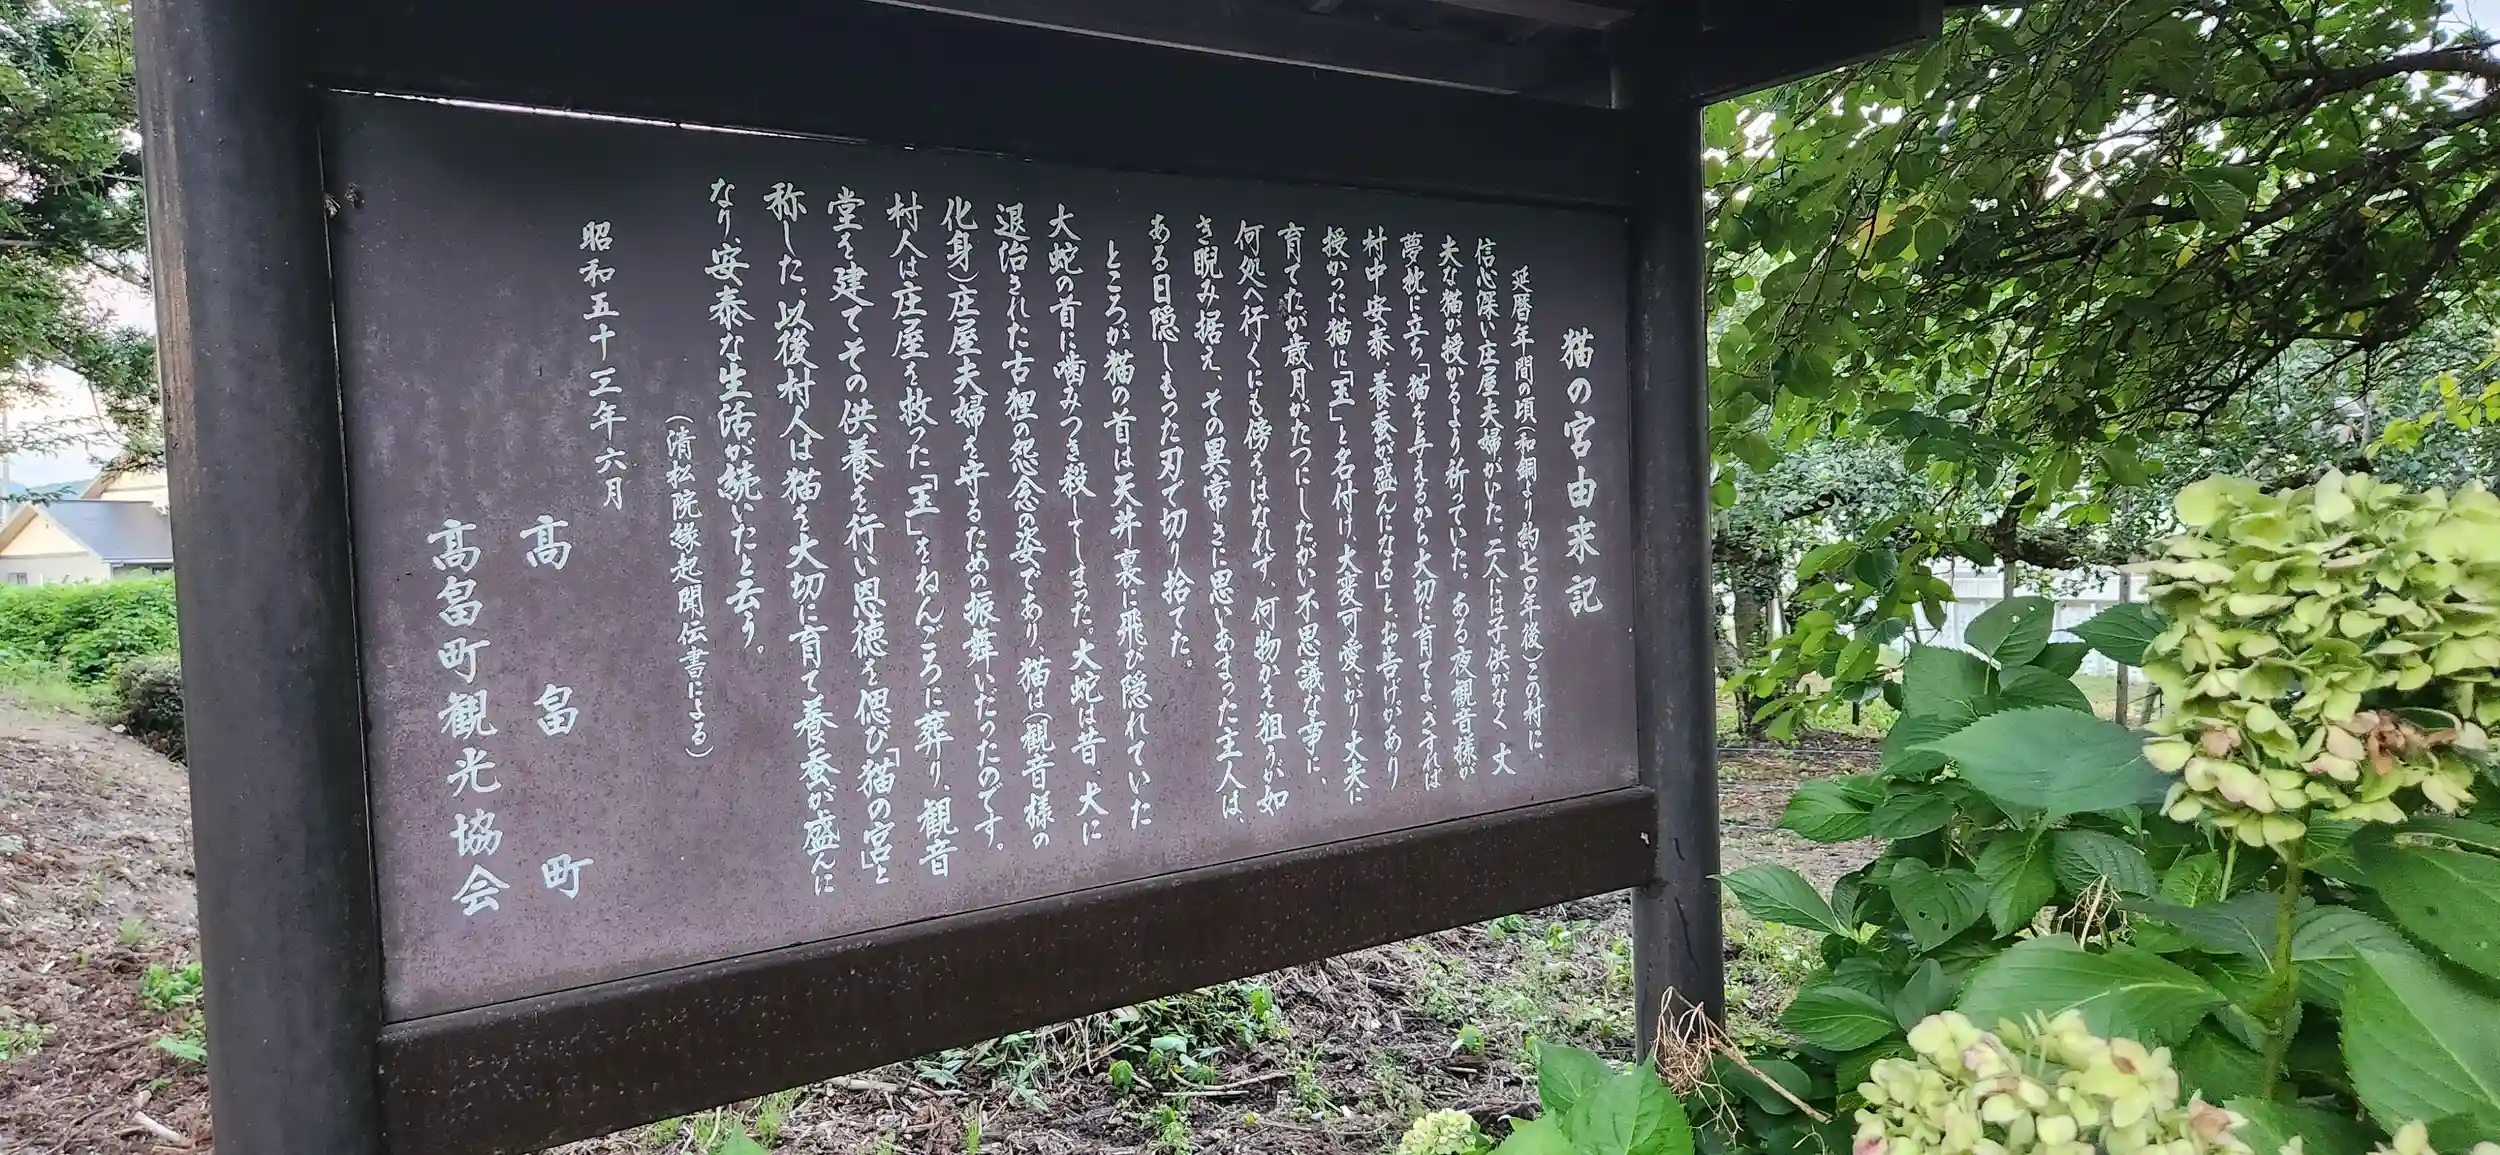 猫の宮由来記
延暦年間の頃(和銅より約七〇年後)この村に、
信心深い庄屋夫婦がいた。二人には子供がなく 丈
夫な猫が授かるより祈っていた。ある夜観音様が
夢枕に立ち「猫を与えるから大切に育てよ、さすれば
村中安泰、養蚕が盛んになる」とお告げがあり
授かった猫に「玉」と名付け、大変可愛いがり丈夫に
育てたが歳月がたつにしたがい不思議な事に、
何処へ行くにも傍をはなれず、何物かを狙うが如
き睨み据え、その異常さに思いあまった主人は、
ある日隠しもった刃で切り捨てた。
ところが猫の首は天井裏に飛び隠れていた
大蛇の首に噛みつき殺してしまった。大蛇は昔、犬に
退治された古狸の怨念の姿であり、猫は(観音様の
化身)庄屋夫婦を守るための振舞いだったのです。
村人は庄屋を救った「玉」をねんごろに葬り、観音
堂を建てその供養を行い恩徳を偲び「猫の宮」と
称した。以後村人は猫を大切に育て養蚕が盛んに
なり、安泰な生活が続いたと云う。
(清松院縁起聞伝書による)
昭和五十三年六月
高畠町
高畠町観光協会